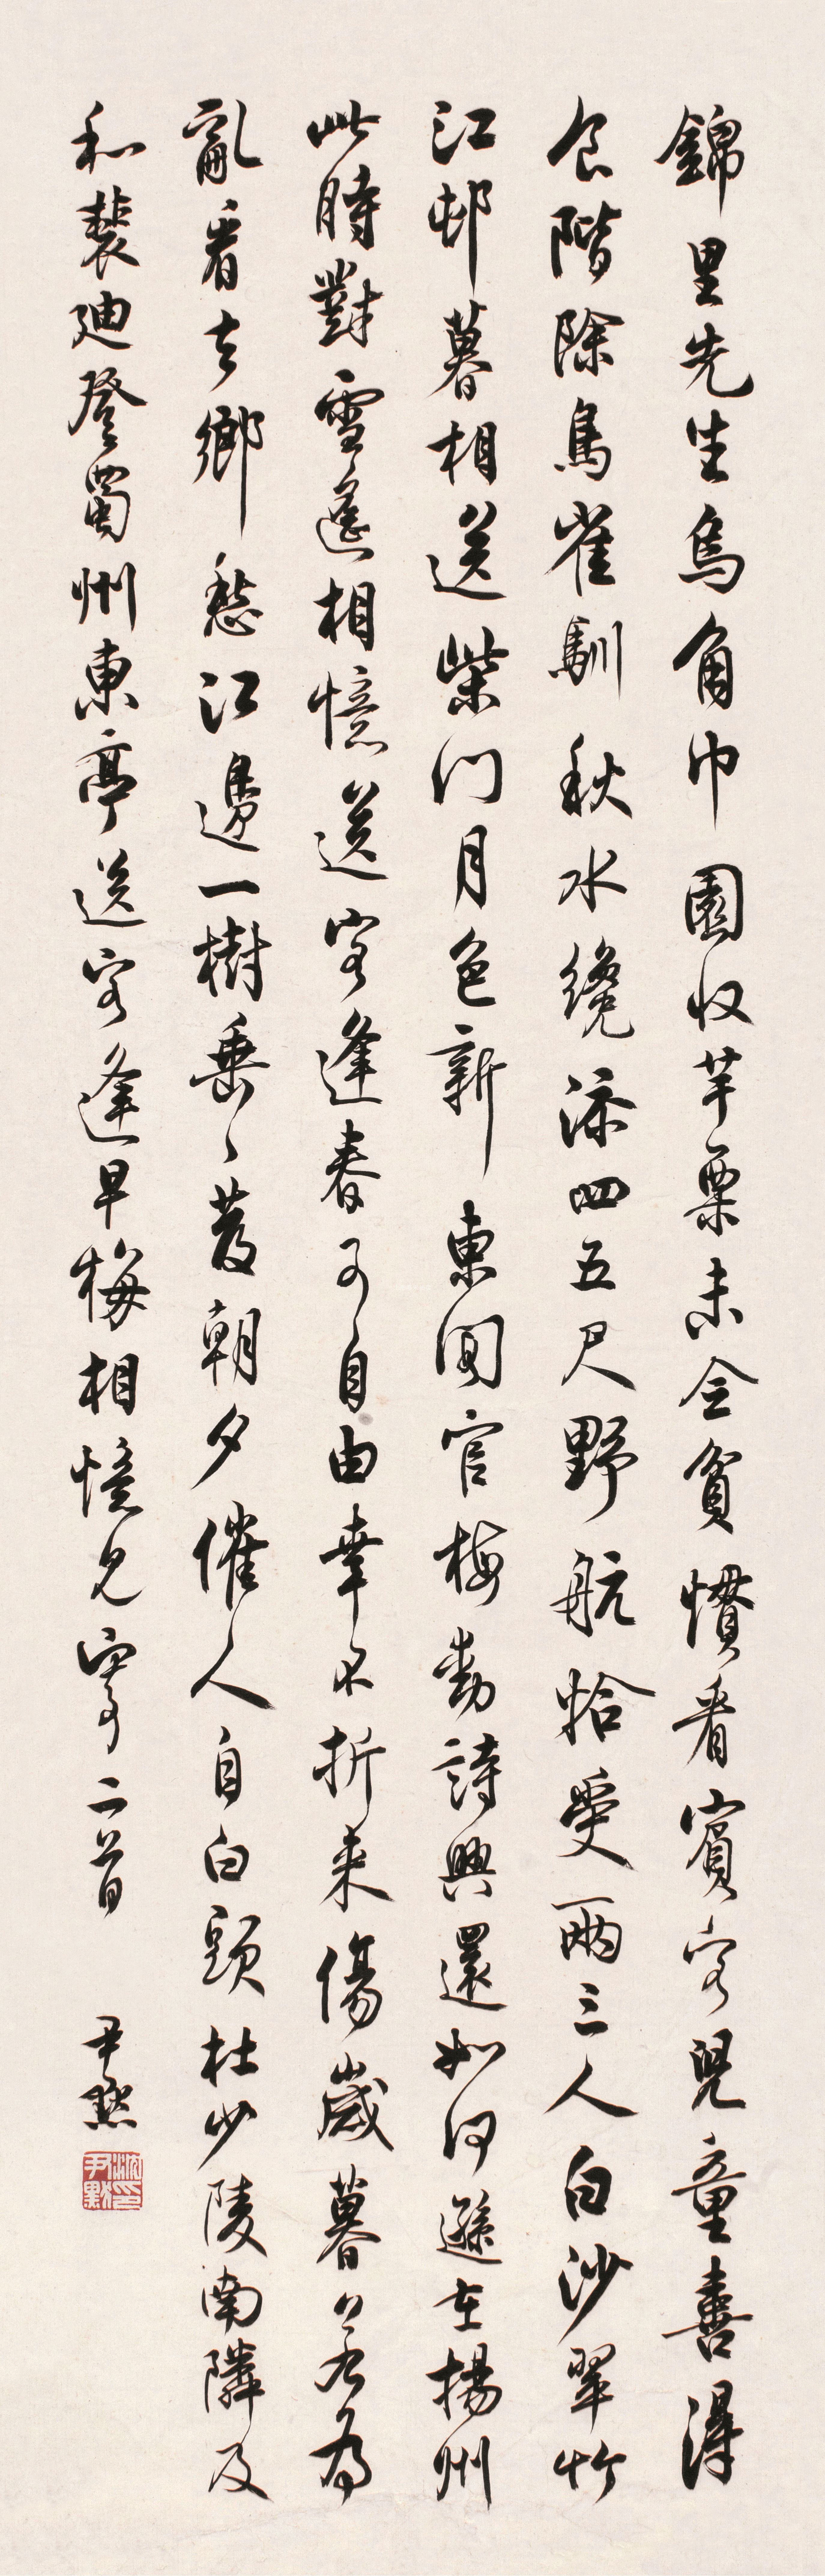 錦里先生烏角巾園收芋栗未全貧慣看賓客兒童喜得
食階除鳥雀馴秋水纔添四五尺野航恰受兩三人白沙翠竹
江邨暮相送柴門月色新東閣官梅動詩興還如何遜在揚州
此時對雪遙相憶送客逢春可自由幸不折來傷歲暮若為
亂看去鄉愁江邊一樹垂〻發朝夕催人自白頭杜少陵南隣及
和裴迪登蜀州東亭送客逢早梅相憶見寄二首
尹默
沈尹默印